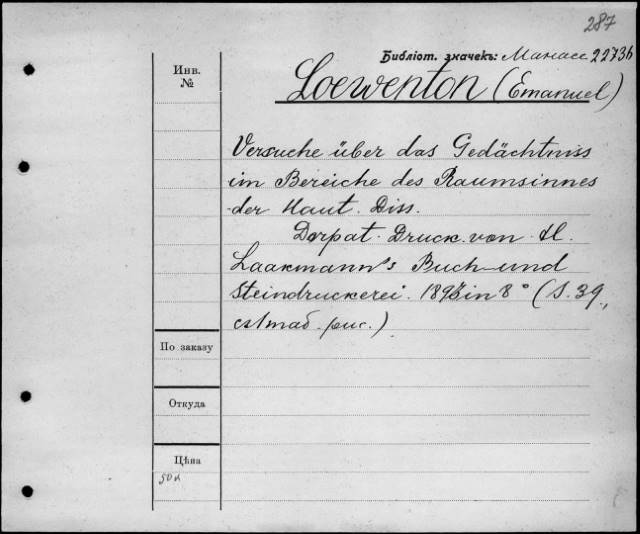 287
Библіот. значекъ: Манасс 22736
Инв.
№
Loewenton (Emanuel)
Versuche über das Gedächtniss
im Bereiche des Raumsinnes
der Haut. Diss.
Dorpat. Druck von H.
Laakmann's Buch- und
Steindruckerei. in 8° (S. 39,
с 1 таб. рис.)
По заказу
Откуда
Цѣна
50к